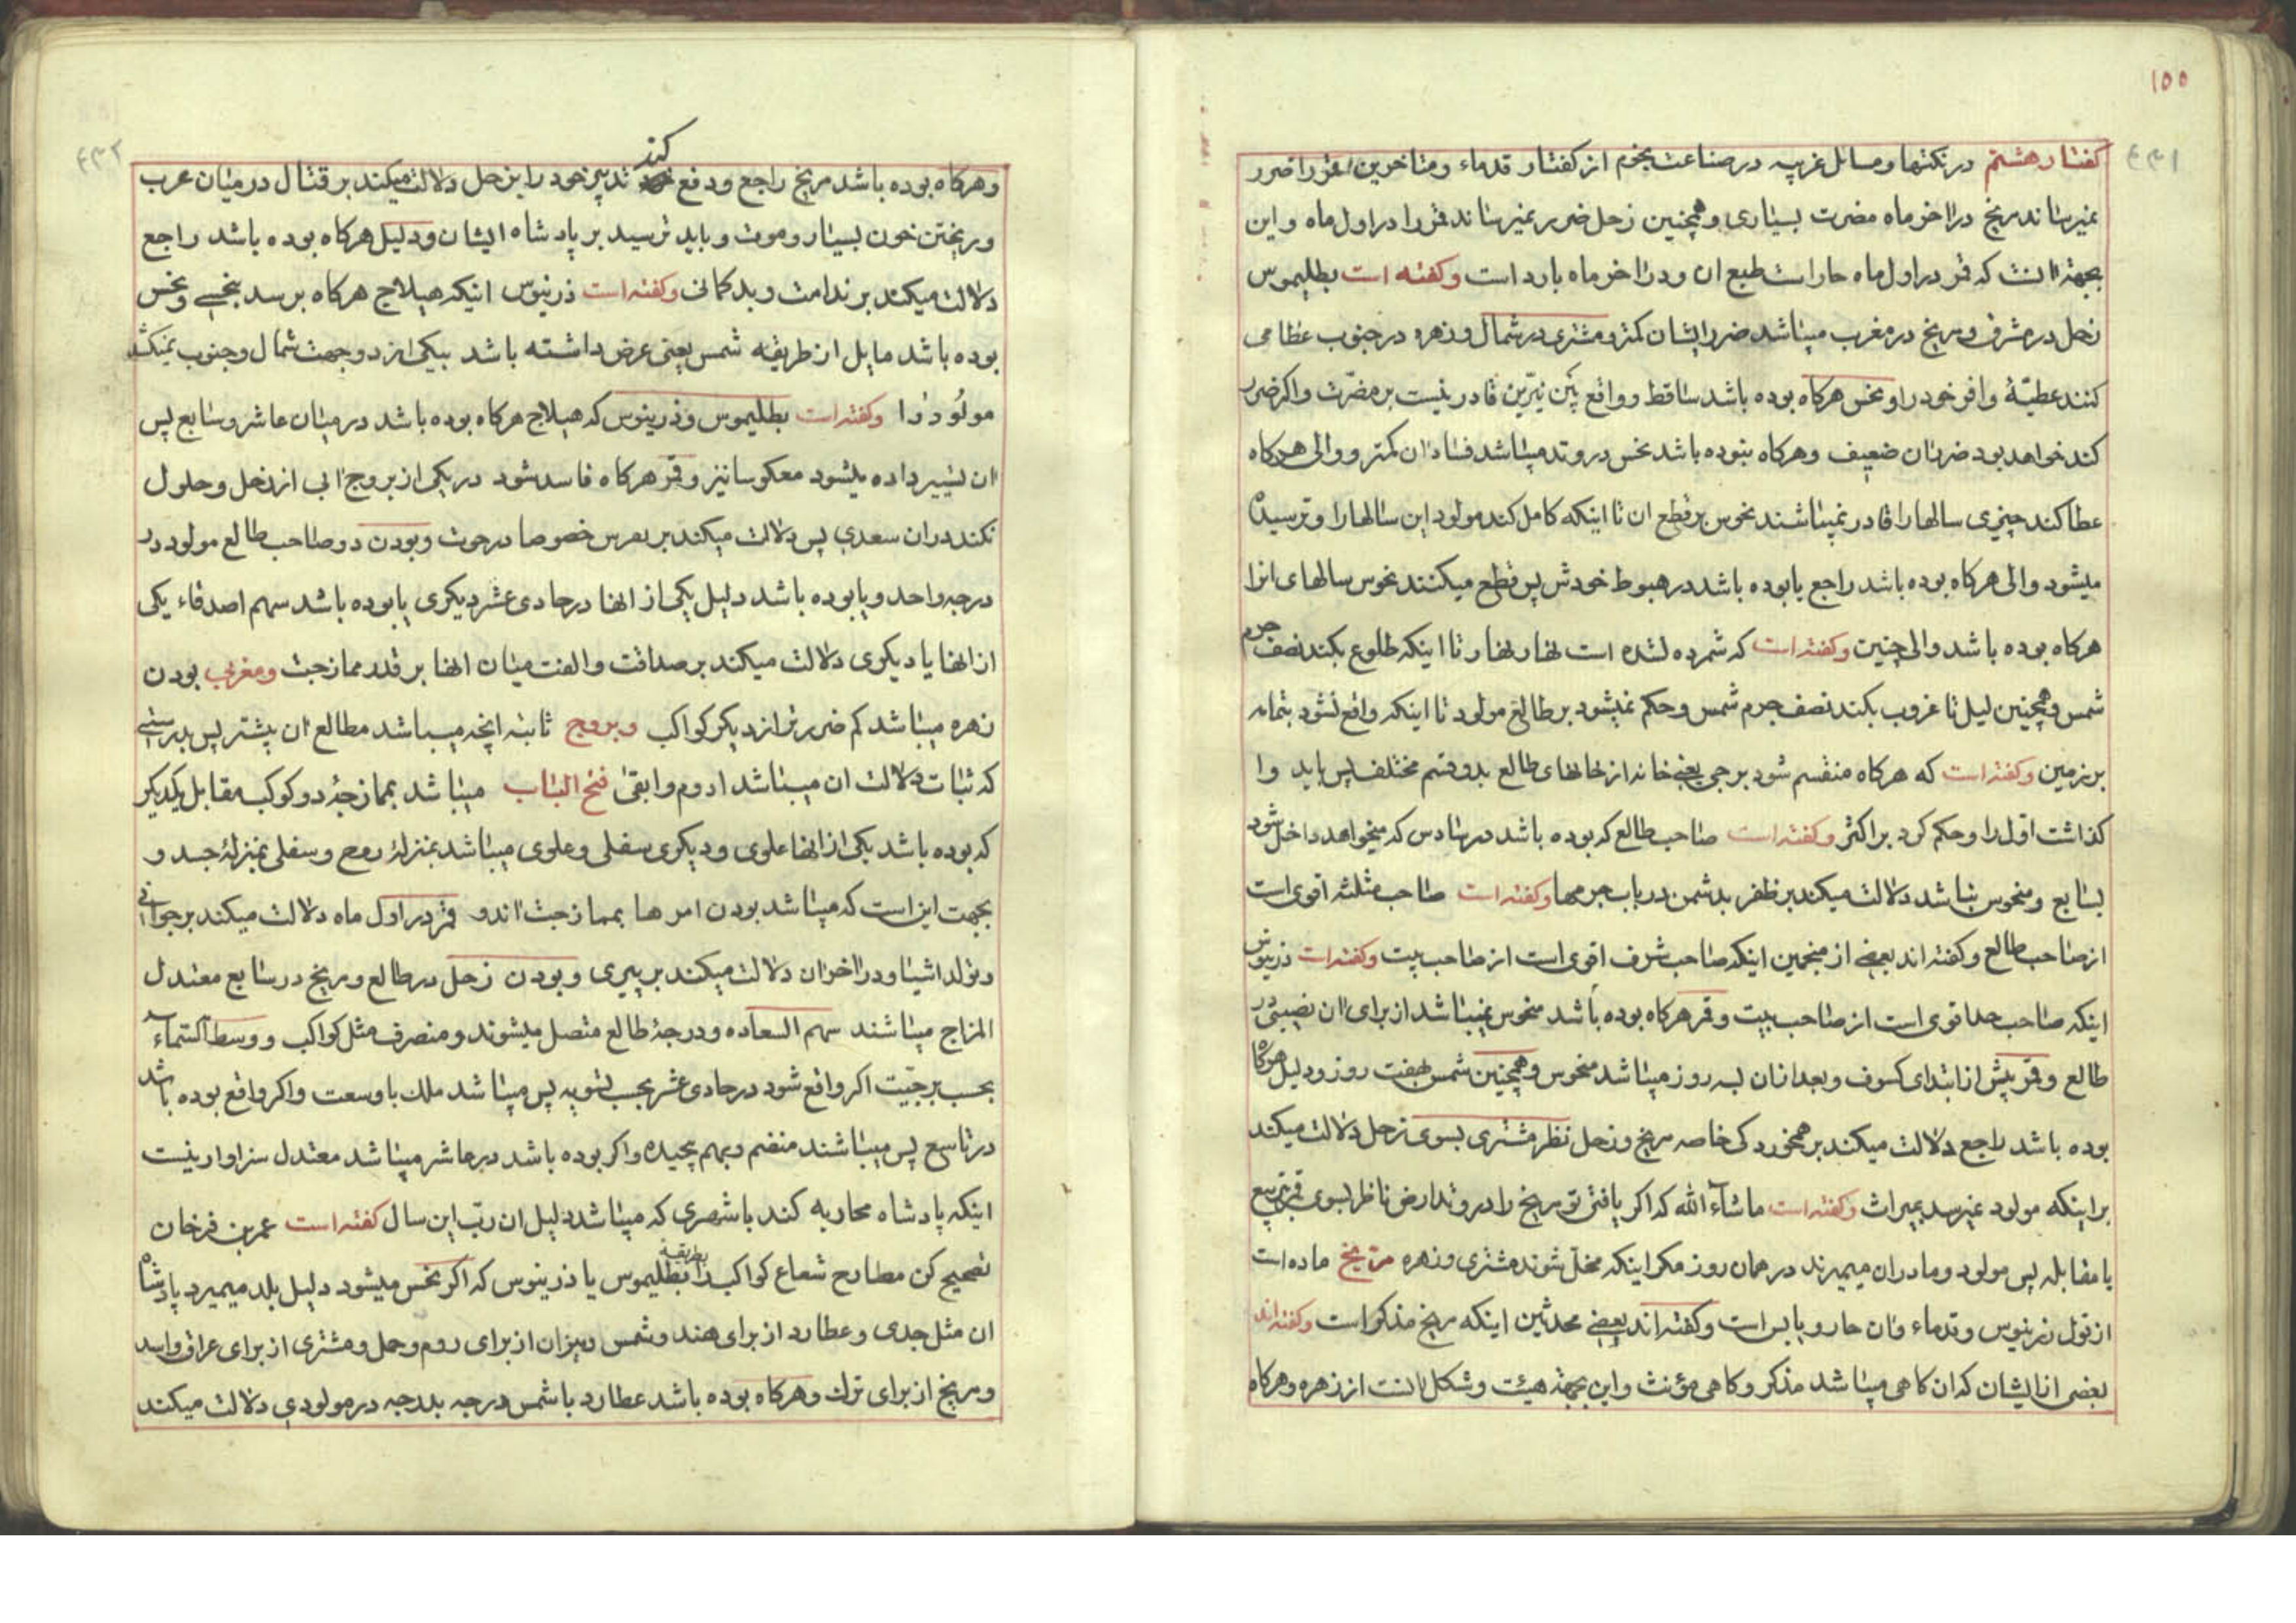 ۱۵۵
۴۳۱
کفتار هشتم در نکتها و مسائل غریبه در صناعت نجوم از کفتار قدماء و متاخرین قمر را ضرر
نمیرساند مریخ در اخر ماه مضرت بسیاری و همچنین زحل ضرر نمیرساند قمر را در اول ماه و این
بجهة انست که قمر در اول ماه حار است طبع ان و در اخر ماه بارد است و کفته است بطلیموس
زحل در مشرق و مریخ در مغرب میباشد ضرر ایشان کمتر و مشتری در شمال و زهره در جنوب عطا می
کنند عطیّهٔ وافر خود را و نحس هرکاه بوده باشد ساقط و واقع بین نیّرین قادر نیست بر مضرّت و اکر ضرر
کند خواهد بود ضرر ان ضعیف و هرکاه نبوده باشد نحس در وتد میباشد فساد ان کمتر و والی هرکاه
عطا کند چیزی سالها را قادر نمیباشند نحوس بر قطع ان تا اینکه کامل کند مولود این سالها را و ترسیده
میشود والی هرکاه بوده باشد راجع یا بوده باشد در هبوط خودش پس قطع میکنند نحوس سالهای انرا
هرکاه بوده باشد والی چنین و کفته است که شمرده نشده است نهار نهار تا اینکه طلوع بکند نصف جرم
شمس و همچنین لیل تا غروب بکند نصف جرم شمس و حکم نمیشود بر طالع مولود تا اینکه واقع نشود بتمامه
بر زمین و کفته است که هرکاه منقسم شود برجی یعنی خانه از خانهای طالع بدو قسم مختلف پس باید وا
کذاشت اقل را و حکم کرد بر اکثر و کفته است صاحب طالع که بوده باشد در سادس که میخواهد داخل شود
بسابع و منحوس نباشد دلالت میکند بر ظفر بدشمن در باب جرمها و کفته است صاحب مثلثه اقوی است
از صاحب طالع و کفته اند بعضی از منجمین اینکه صاحب شرف اقوی است از صاحب بیت و کفته است ذرینوس
اینکه صاحب حد اقوی است از صاحب بیت و قمر هرکاه بوده باشد منحوس نمیباشد از برای ان نصیبی در
طالع و قمر پیش از ابتدای کسوف و بعد از ان بسه روز میباشد منحوس و همچنین شمس بهفت روز و دلیل هرکاه
بوده باشد راجع دلالت میکند بر همخوردکی خاصه مریخ و زحل نظر مشتری بسوی زحل دلالت میکند
بر اینکه مولود نمیرسد بمیراث و کفته است ماشاء الله که اکر یافتی تو مریخ را در وتد ارض ناظر بسوی قمر بتربیع
یا مقابله پس مولود و مادر ان میمیرند در همان روز مکر اینکه مخل شوند مشتری و زهره مریخ ماده است
از قول ذرینوس و قدماء و ان حار و یابس است و کفته اند بعضی محدثین اینکه مریخ مذکر است و کفته اند
بعضی از ایشان که ان کاهی میباشد مذکر و کاهی مؤنث و این بجهة هیئت و شکل انست از زهره و هرکاه
۴۳۲
وهرکاه بوده باشد مریخ راجع و دفع کند تدبیر خود را بزحل دلالت میکند بر قتال در میان عرب
و ریختن خون بسیار و موت و باید ترسید بر پادشاه ایشان و دلیل هرکاه بوده باشد راجع
دلالت میکند بر ندامت و بدکمانی و کفته است ذرینوس اینکه هیلاج هرکاه برسد بنحسی و نحس
بوده باشد مایل از طریقه شمس یعنی عرض داشته باشد بیکی از دو جهت شمال و جنوب نمیکشد
مولود را و کفته است بطلیموس و ذرینوس که هیلاج هرکاه بوده باشد در میان عاشر و سابع پس
ان تسییر داده میشود معکوسا نیز و قمر هرکاه فاسد شود در یکی از بروج ابی از زحل و حلول
نکند در ان سعدی پس دلالت میکند بر برص خصوصا در حوت و بودن دو صاحب طالع مولود در
درجه واحد و یا بوده باشد دلیل یکی از انها در حادی عشر دیکری یا بوده باشد سهم اصدقاء یکی
از انها یا دیکری دلالت میکند بر صداقت و الفت میان انها بر قدر ممازجت و مغربی بودن
زهره میباشد کم ضررتر از دیکر کواکب و بروج ثابته انچه میباشد مطالع ان بیشتر پس بدرستی
که ثبات دلالت ان میباشد ادوم و ابقی فتح الباب میباشد بممازجهٔ دو کوکب مقابل یکدیکر
که بوده باشد یکی از انها علوی و دیکری سفلی و علوی میباشد بمنزلهٔ روح و سفلی بمنزلهٔ جسد و
بجهت این است که میباشد بودن امرها بممازجت اندو قمر در اول ماه دلالت میکند بر جوانی
و تولد اشیا و در اخر ان دلالت میکند بر پیری و بودن زحل در طالع و مریخ در سابع معتدل
المزاج میباشند سهم السعاده و درجهٔ طالع متصل میشوند و منصرف مثل کواکب و وسط السماء
بحسب برجیّت اکر واقع شود در حادی عشر بحسب تسویه پس میباشد ملک با وسعت و اکر واقع بوده باشد
در تاسع پس میباشند منضم و بهم پیچیده و اکر بوده باشد در عاشر میباشد معتدل سزاوار نیست
اینکه پادشاه محاربه کند با شهری که میباشد دلیل ان ربّ این سال کفته است عمر بن فرخان
تصحیح کن مطارح شعاع کواکب را بطریقهٔ بطلیموس یا ذرینوس که اکر نحس میشود دلیل بلد میمیرد پادشاه
ان مثل جدی و عطارد از برای هند و شمس و میزان از برای روم و حمل و مشتری از برای عراق و اسد
و مریخ از برای ترک و هرکاه بوده باشد عطارد با شمس درجه بدرجه در مولودی دلالت میکند